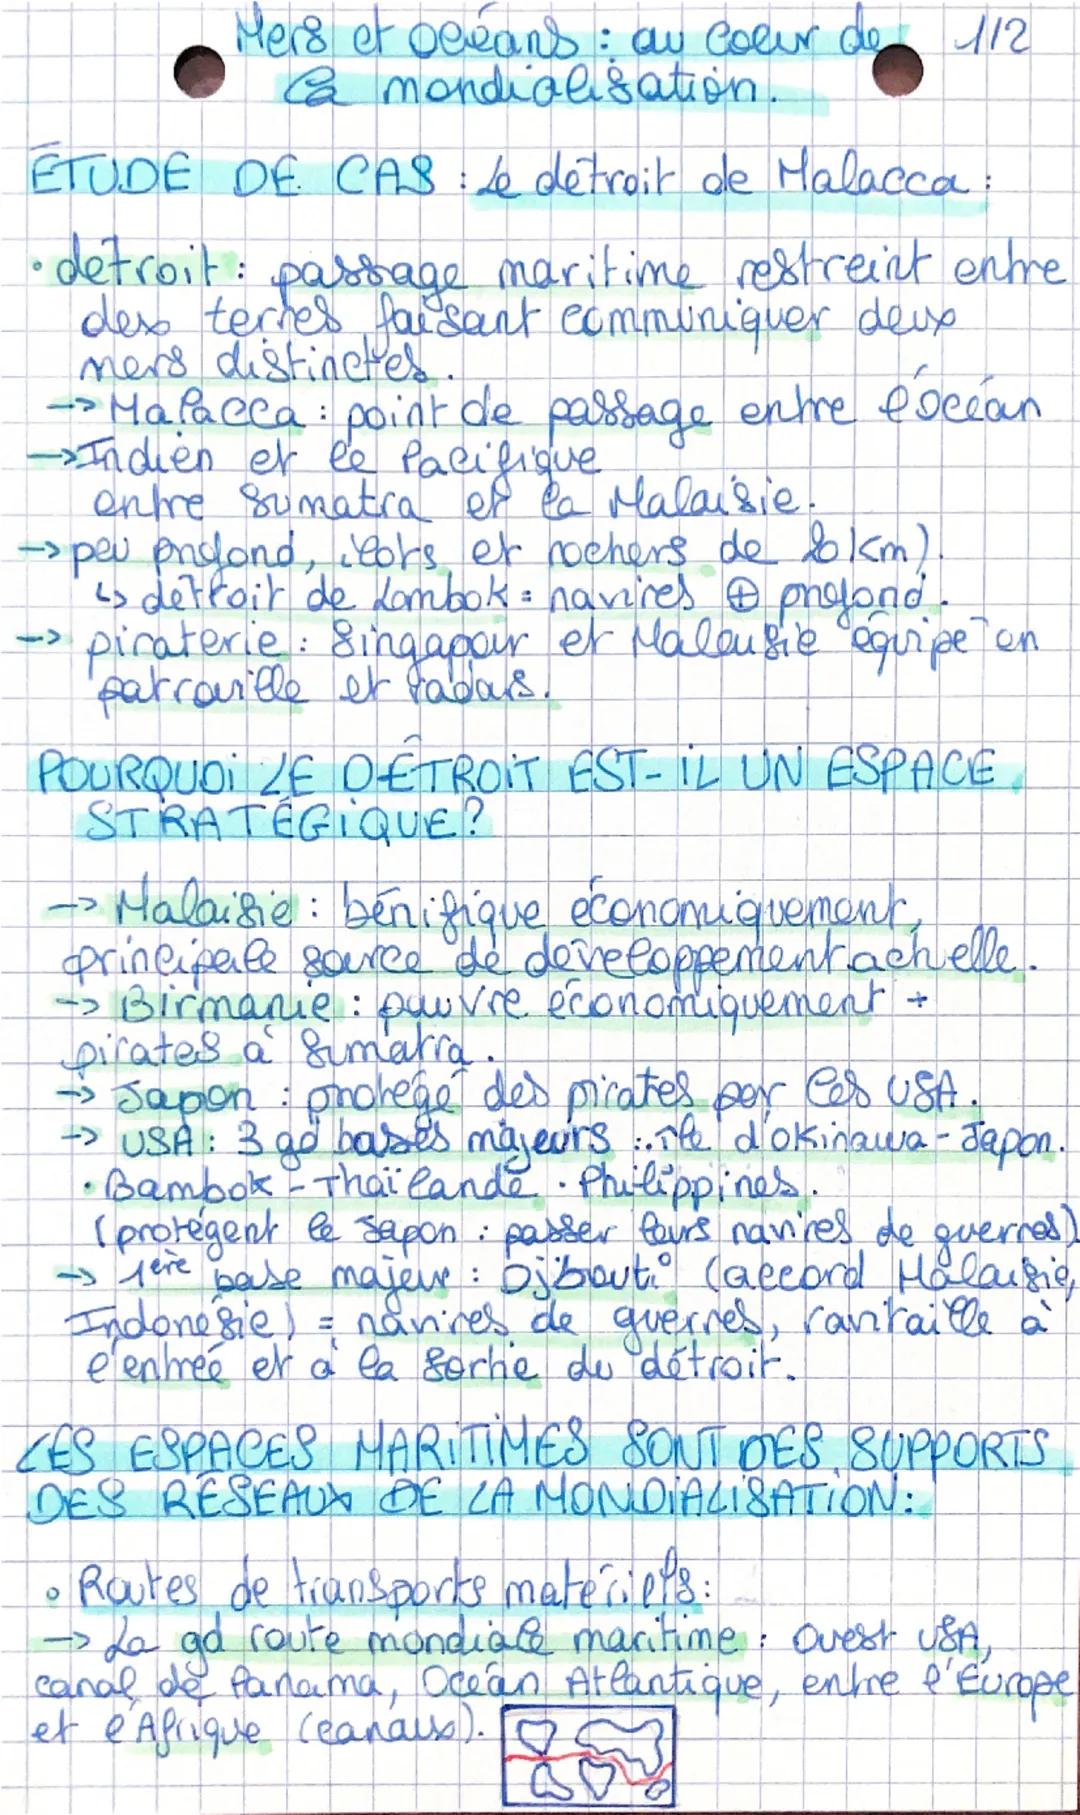 Mers et océans : au coeur de 1/2
la mondialisation.
ÉTUDE DE CAS : Le détroit de Malacca :
• détroit : passage maritime restreint entre
des terres faisant communiquer deux
mers distinctes.
-> Malacca : point de passage entre l'océan
-> Indien et le Pacifique
entre Sumatra et la Malaisie.
-> peu profond, îlots et rochers de 20km).
↳ détroit de Lombok = navires ⊕ profond.
-> piraterie : Singapour et Malaisie équipé en
patrouille et radars.
POURQUOI LE DÉTROIT EST-IL UN ESPACE
STRATÉGIQUE ?
-> Malaisie : bénifique économiquement,
principale source de développement actuelle.
-> Birmanie : pauvre économiquement +
pirates à Sumatra.
-> Japon : protégé des pirates par les USA.
-> USA : 3 gd bases majeurs : île d'Okinawa - Japon.
• Bambok - Thaïlande • Philippines.
(protégent le Japon : passer leurs navires de guerres)
-> 1ère base majeur : Djibouti (accord Malaisie,
Indonésie) = navires de guerres, ravitaille à
l'entrée et à la sortie du détroit.
LES ESPACES MARITIMES SONT DES SUPPORTS
DES RÉSEAUX DE LA MONDIALISATION :
• Routes de transports matériels :
-> La gd route mondiale maritime : Ouest USA,
canal de Panama, Océan Atlantique, entre l'Europe
et l'Afrique (canaux).